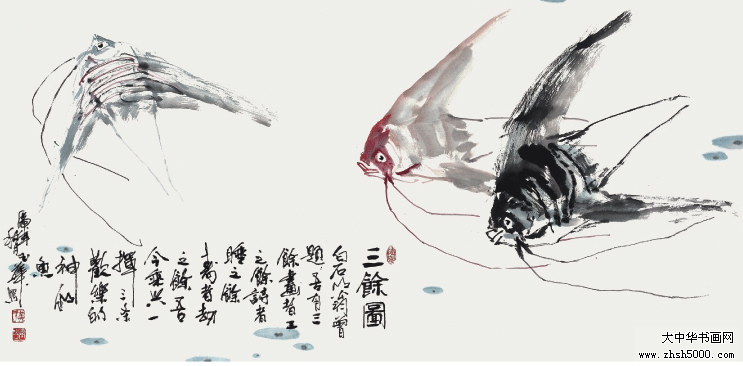 三餘圖
白石山翁曾
題吾有三
餘畫者工
之餘詩者
睡之餘
壽者劫
之餘吾
今乘興一
揮三条
歡樂的
神仙
魚
大中华书画网
www.zhsh5000.com